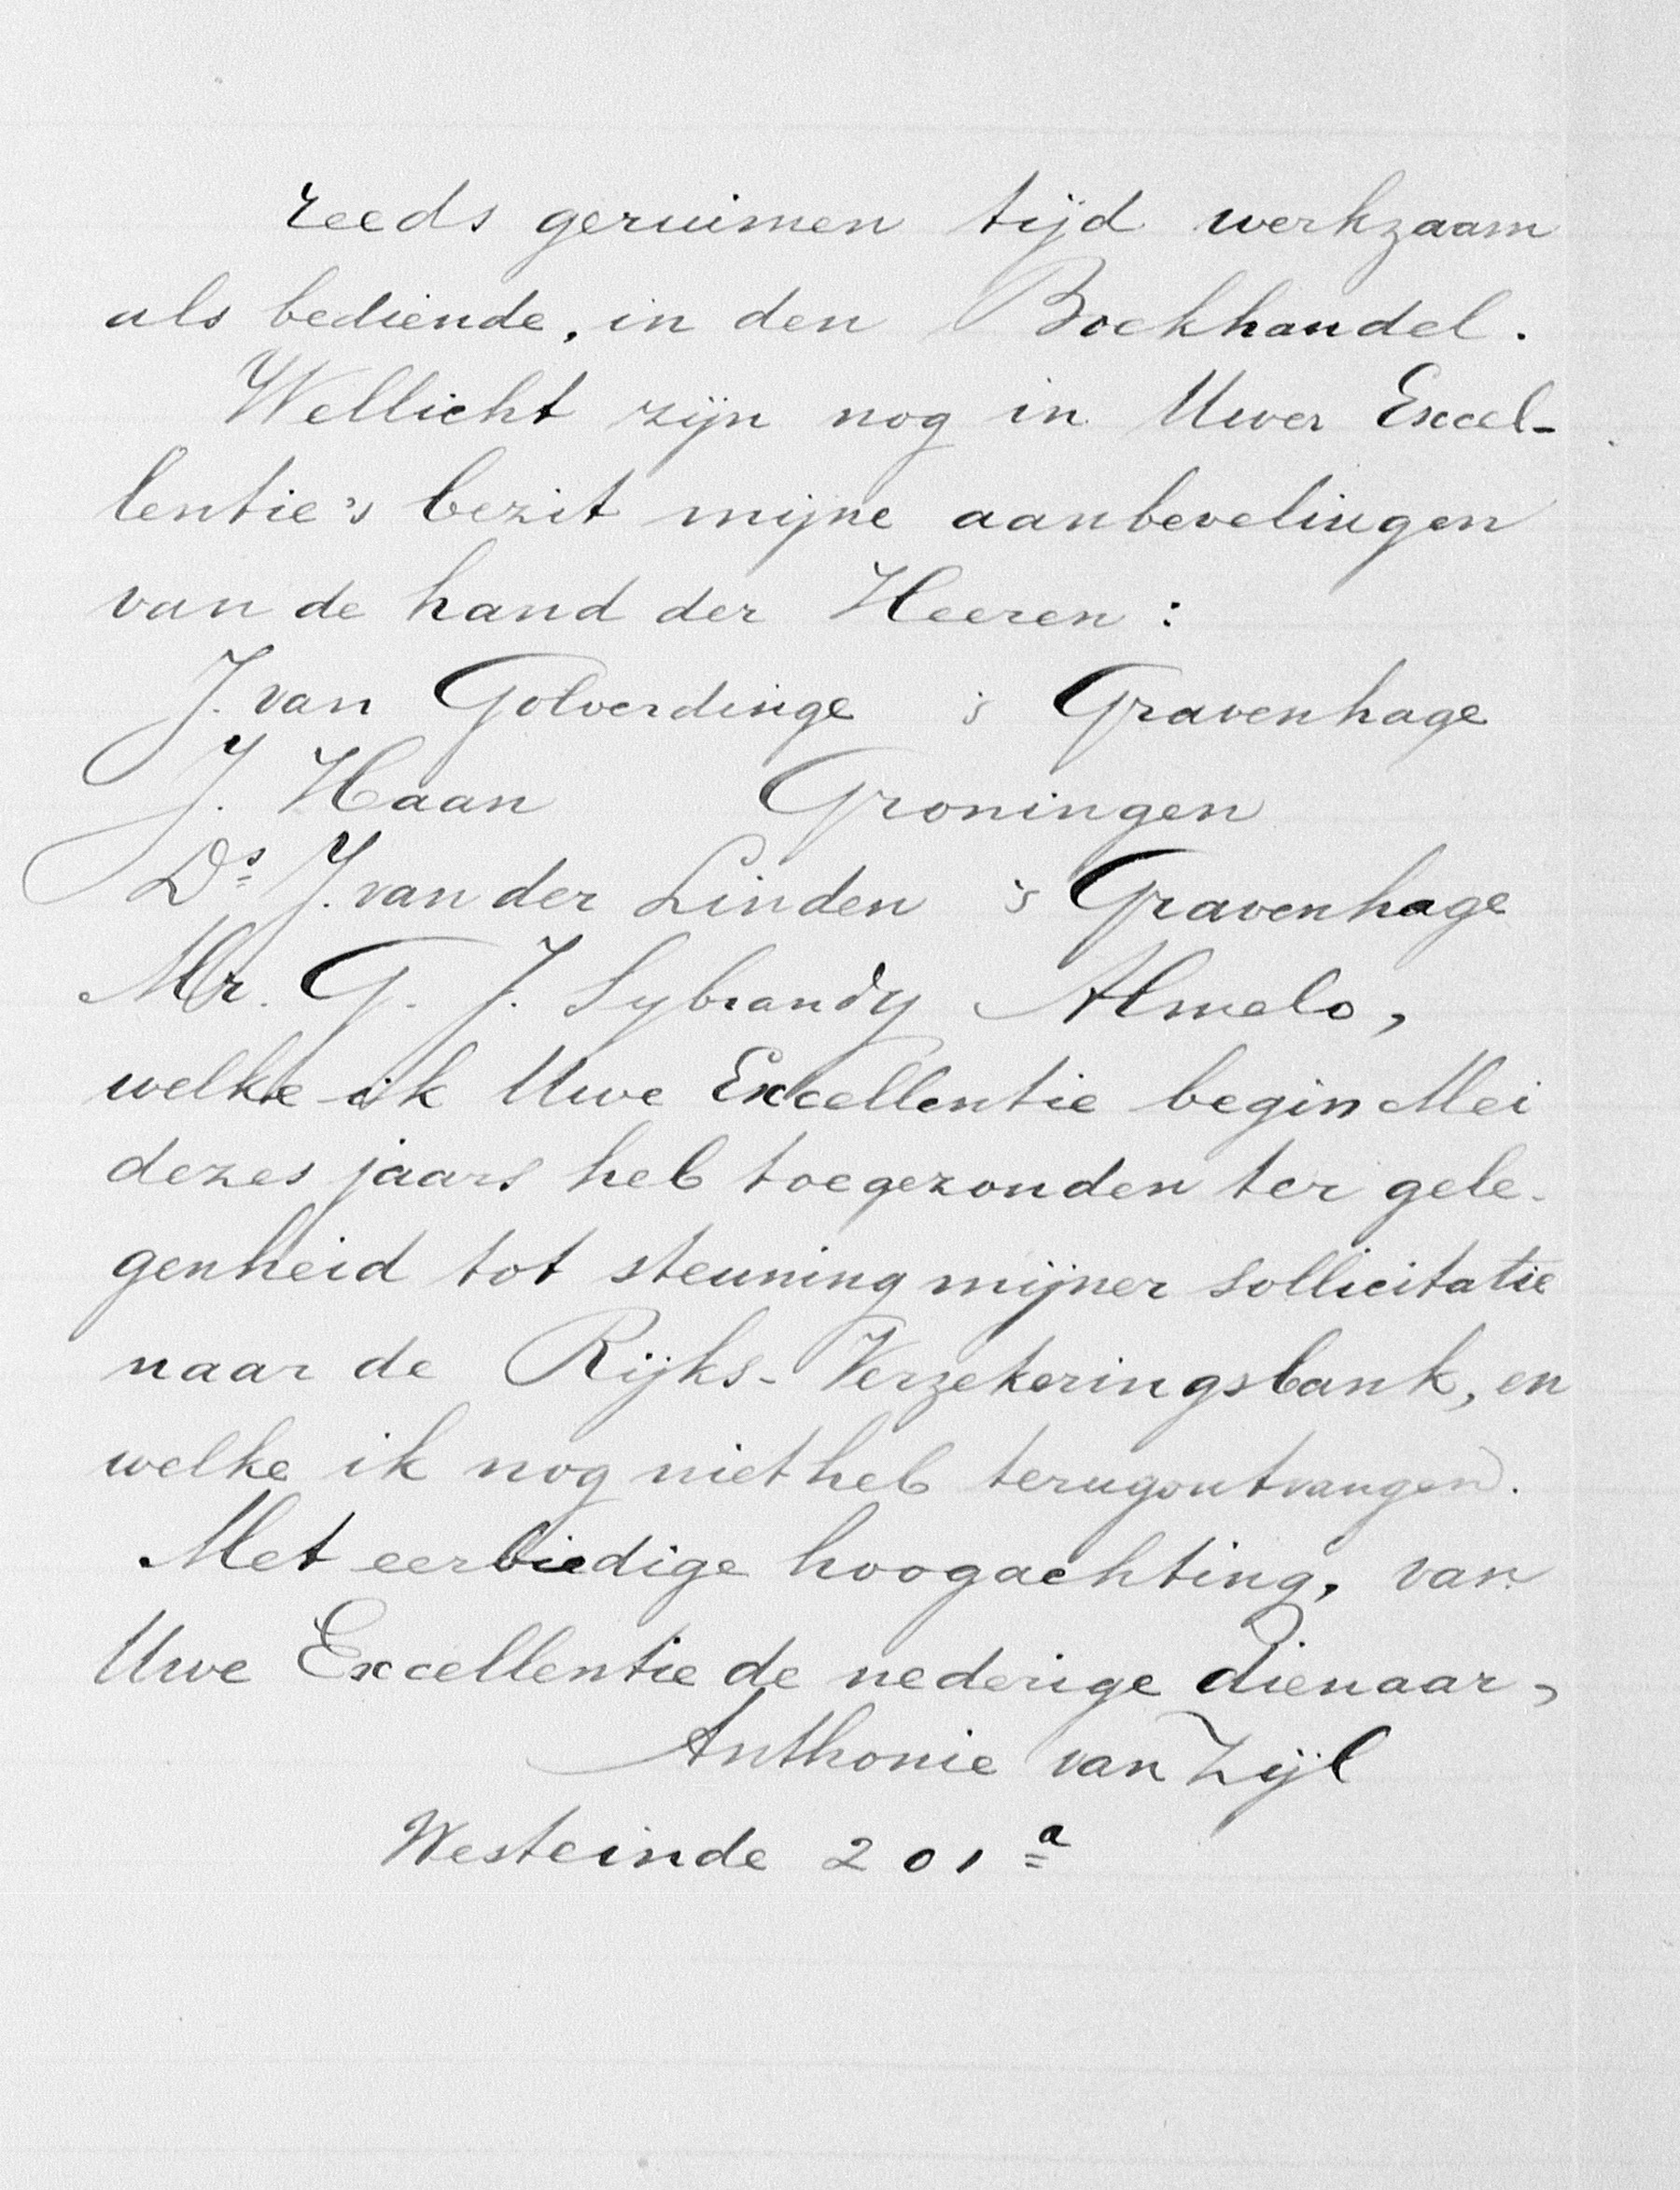 reeds geruimen tijd werkzaam
als bediende, in den Boekhandel.
Wellicht zijn nog in Uwer Excel-
lentie's bezit mijne aanbevelingen
van de hand der Heeren:
J. van Golverdinge 's Gravenhage
J. Haan Groningen
Ds J. van der Linden 's Gravenhage
Mr. G. J. Sybrandy Almelo,
welke ik Uwe Excellentie begin Mei
dezes jaars heb toegezonden ter gele-
genheid tot steuning mijner sollicitatie
naar de Rijks-Verzekeringsbank, en
welke ik nog niet heb terugontvangen.
Met eerbiedige hoogachting, van
Uwe Excellentie de nederige dienaar,
Anthonie van Zijl
Westeinde 201a